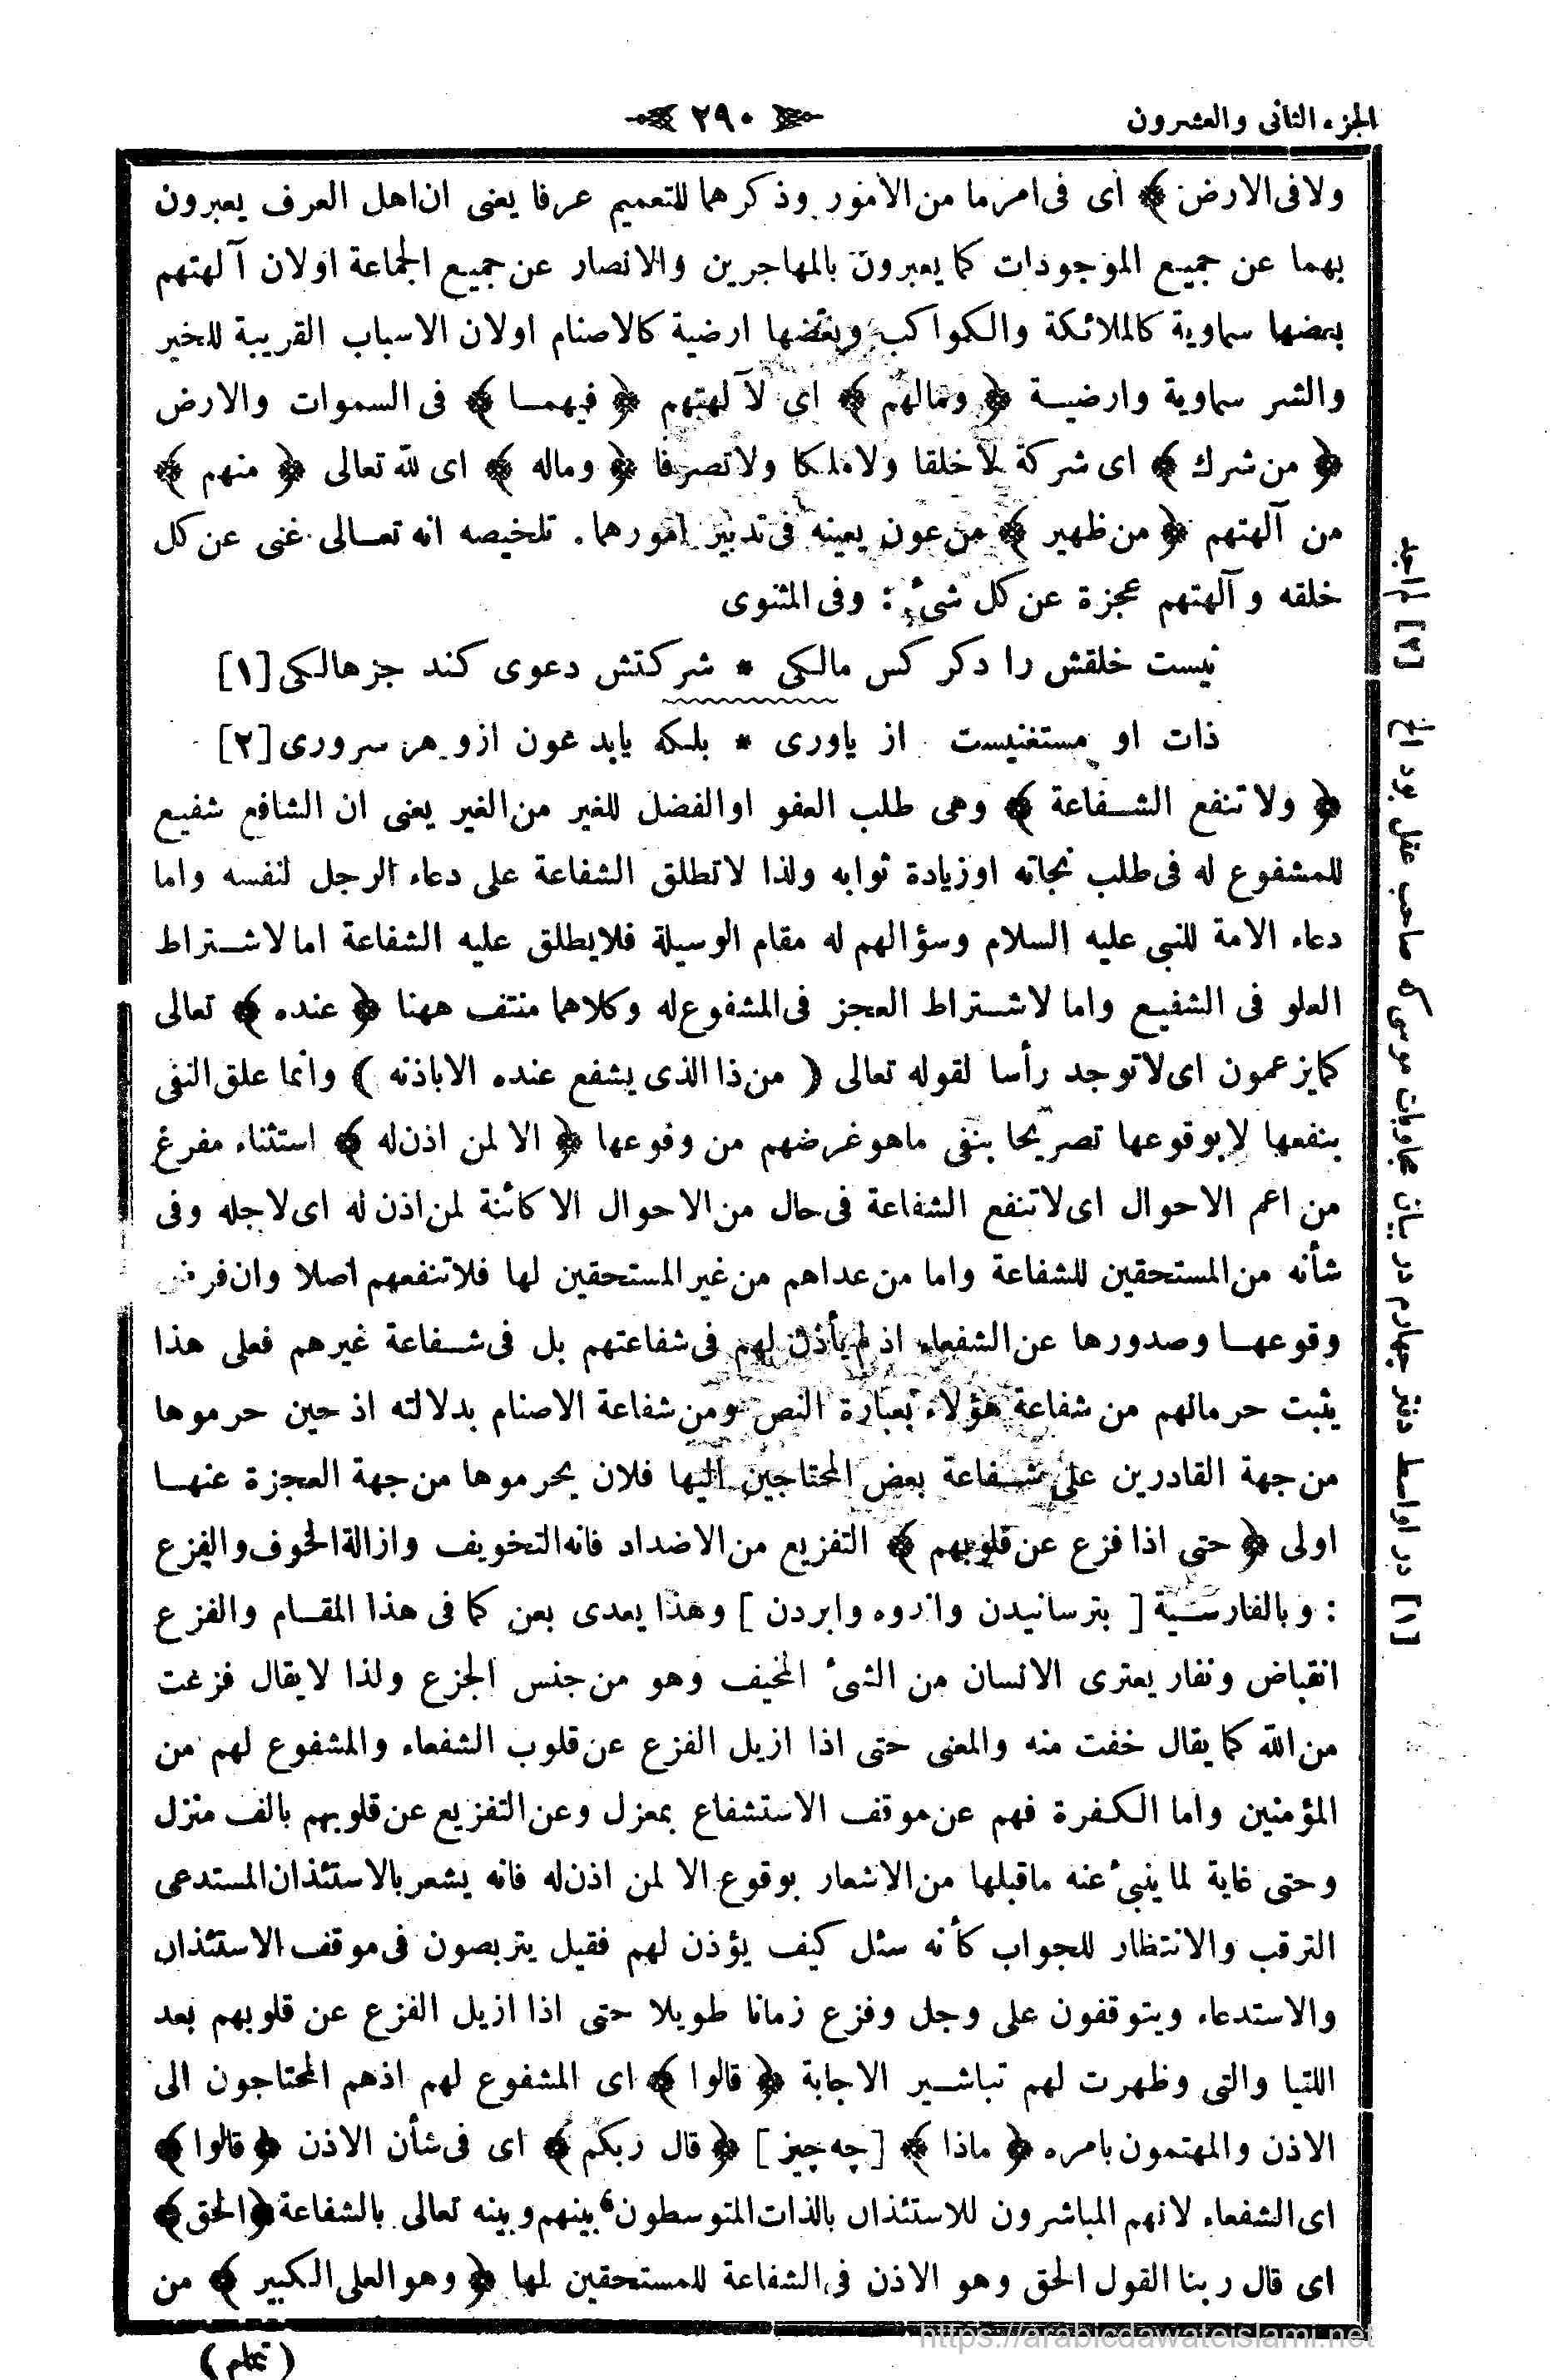 الجزء الثانى والعشرون
﴿ ٢٩٠ ﴾
ولا فى الارض ﴾ اى فى امر ما من الامور وذكرهما للتعميم عرفا يعنى ان اهل العرف يعبرون
بهما عن جميع الموجودات كما يعبرون بالمهاجرين والانصار عن جميع الجماعة اولان آلهتهم
بعضها سماوية كالملائكة والكواكب وبعضها ارضية كالاصنام اولان الاسباب القريبة للخير
والشر سماوية وارضية ﴿ ومالهم ﴾ اى لآلهتهم ﴿ فيهما ﴾ فى السموات والارض
﴿ من شرك ﴾ اى شركة لاخلقا ولا ملكا ولا تصرفا ﴿ وماله ﴾ اى لله تعالى ﴿ منهم ﴾
من آلهتهم ﴿ من ظهير ﴾ من عون يعينه فى تدبير امورهما . تلخيصه انه تعالى غنى عن كل
خلقه وآلهتهم عجزة عن كل شىء : وفى المثنوى
نيست خلقش را دكر كس مالكى * شركتش دعوى كند جز هالكى [١]
ذات او مستغنيست از ياورى * بلكه يابد عون ازو هر سرورى [٢]
﴿ ولا تنفع الشفاعة ﴾ وهى طلب العفو اوالفضل للغير من الغير يعنى ان الشافع شفيع
للمشفوع له فى طلب نجاته اوزيادة ثوابه ولذا لاتطلق الشفاعة على دعاء الرجل لنفسه واما
دعاء الامة للنبى عليه السلام وسؤالهم له مقام الوسيلة فلايطلق عليه الشفاعة اما لاشتراط
العلو فى الشفيع واما لاشتراط العجز فى المشفوع له وكلاهما منتف ههنا ﴿ عنده ﴾ تعالى
كما يزعمون اى لاتوجد رأسا لقوله تعالى ( من ذا الذى يشفع عنده الا باذنه ) وانما علق النفى
بنفعها لابوقوعها تصريحا بنفى ماهو غرضهم من وقوعها ﴿ الا لمن اذن له ﴾ استثناء مفرغ
من اعم الاحوال اى لاتنفع الشفاعة فى حال من الاحوال الا كائنة لمن اذن له اى لاجله وفى
شأنه من المستحقين للشفاعة واما من عداهم من غير المستحقين لها فلاتنفعهم اصلا وان فرض
وقوعها وصدورها عن الشفعاء اذ لم يأذن لهم فى شفاعتهم بل فى شفاعة غيرهم فعلى هذا
يثبت حرمانهم من شفاعة هؤلاء بعبارة النص ومن شفاعة الاصنام بدلالته اذ حين حرموها
من جهة القادرين على شفاعة بعض المحتاجين اليها فلان يحرموها من جهة العجزة عنها
اولى ﴿ حتى اذا فزع عن قلوبهم ﴾ التفزيع من الاضداد فانه التخويف وازالة الخوف والفزع
: وبالفارسية [ بترسانيدن واندوه وابردن ] وهذا يعدى بعن كما فى هذا المقام والفزع
انقباض ونفار يعترى الانسان من الشىء المخيف وهو من جنس الجزع ولذا لايقال فزعت
من الله كما يقال خفت منه والمعنى حتى اذا ازيل الفزع عن قلوب الشفعاء والمشفوع لهم من
المؤمنين واما الكفرة فهم عن موقف الاستشفاع بمعزل وعن التفزيع عن قلوبهم بالف منزل
وحتى غاية لما ينبىء عنه ماقبلها من الاشعار بوقوع الا لمن اذن له فانه يشعر بالاستئذان المستدعى
الترقب والانتظار للجواب كأنه سئل كيف يؤذن لهم فقيل يتربصون فى موقف الاستئذان
والاستدعاء ويتوقفون على وجل وفزع زمانا طويلا حتى اذا ازيل الفزع عن قلوبهم بعد
اللتيا والتى وظهرت لهم تباشير الاجابة ﴿ قالوا ﴾ اى المشفوع لهم اذهم المحتاجون الى
الاذن والمهتمون بامره ﴿ ماذا ﴾ [ چه چيز ] ﴿ قال ربكم ﴾ اى فى شأن الاذن ﴿ قالوا ﴾
اى الشفعاء لانهم المباشرون للاستئذان بالذات المتوسطون بينهم وبينه تعالى بالشفاعة ﴿ الحق ﴾
اى قال ربنا القول الحق وهو الاذن فى الشفاعة للمستحقين لها ﴿ وهو العلى الكبير ﴾ من
[١] در اواسط دفتر چهارم در بيان مجاوبات موسى كه صاحب عقل بود الخ [٢] لم اجد
https://arabicdawateislami.net